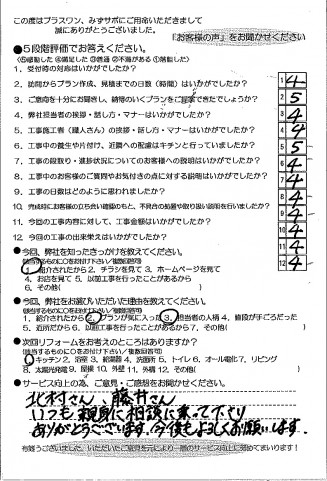 この度はプラスワン、みずサポにご用命いただきまして
誠にありがとうございました。
『お客様の声』をお聞かせください
●5段階評価でお答えください。
(⑤感動した ④満足した ③普通 ②不満がある ①落胆した)
1. 受付時の対応はいかがでしたか? 1 4
2. 訪問からプラン作成、見積までの日数(時間)はいかがでしたか? 2 5
3. ご意向を十分にお聞きし、納得のいくプランをご提案できたでしょうか? 3 5
4. 弊社担当者の挨拶・話し方・マナーはいかがでしたか? 4 4
5. 工事施工者(職人さん)の挨拶・話し方・マナーはいかがでしたか? 5 4
6. 工事中の養生や片付け、近隣への配慮はキチンと行っていましたか? 6 5
7. 工事の段取り・進捗状況についてのお客様への説明はいかがでしたか? 7 4
8. 工事中のお客様のご質問やお気付きの点に対する説明はいかがでしたか? 8 4
9. 工事の日数はどのように思われましたか? 9 4
10. 完成時にお客様の立ち会い確認のもと、不具合の処置や取り扱い説明を行いましたか? 10 4
11. 今回の工事内容に対して、工事金額はいかがでしたか? 11 4
12. 今回の工事の出来栄えはいかがでしたか? 12 4
●今回、弊社を知ったきっかけを教えてください。
(該当するものに○をお付け下さい/複数回答可)
1. 紹介されたから 2. チラシを見て 3. ホームページを見て
4. お店を見て 5. 以前工事を行ったことがあるから
6. その他( )
●今回、弊社をお選びいただいた理由を教えてください。
(該当するものに○をお付け下さい/複数回答可)
1. 紹介されたから 2. プランが気に入った 3. 担当者の人柄 4. 値段が手ごろだった
5. 近所だから 6. 以前工事を行ったことがあるから 7. その他( )
●次回リフォームをお考えのところはありますか?
(該当するものに○をお付け下さい/複数回答可)
1. キッチン 2. 浴室 3. 給湯器 4. 洗面所 5. トイレ 6. オール電化 7. リビング
8. 太陽光発電 9. 屋根 10. 外壁 11. 外構 12. その他( )
●サービス向上の為、ご意見・ご感想をお聞かせください。
北村さん、藤井さん
いつも親身に相談に乗って下さり
ありがとうございます。今後もよろしくお願いします。
有難うございました。いただいたご意見を元により一層のサービス向上に努めてまいります!